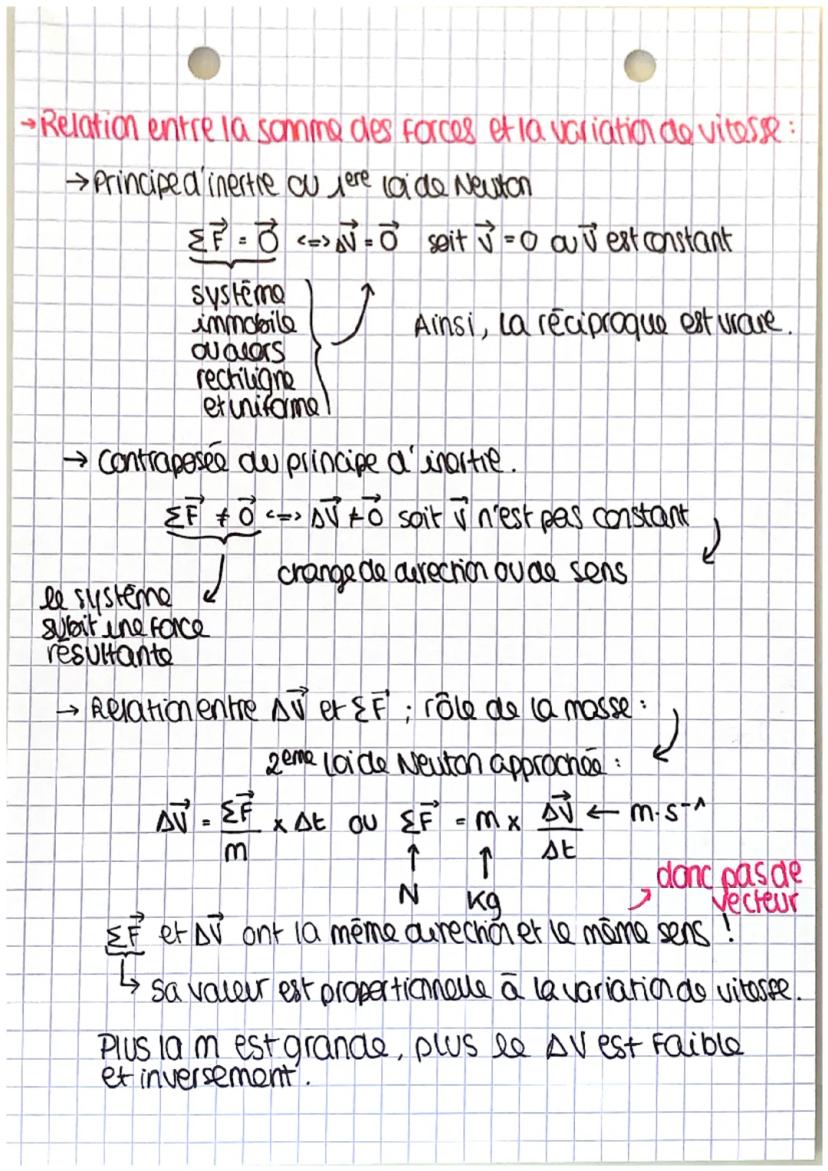 → Relation entre la somme des forces et la variation de vitesse :
→ Principe d'inertie ou 1ere loi de Newton
ΣF⃗ = 0⃗ <=> ΔV⃗ = 0⃗ soit V⃗ = 0 ou V⃗ est constant
système
immobile
ou alors
rectiligne
et uniforme
Ainsi, la réciproque est vraie.
→ Contraposée du principe d'inertie.
ΣF⃗ ≠ 0⃗ <=> ΔV⃗ ≠ 0⃗ soit V⃗ n'est pas constant
change de direction ou de sens
le système
subit une force
résultante
→ Relation entre ΔV⃗ et ΣF⃗ ; rôle de la masse :
2eme loi de Newton approchée :
ΔV⃗ = ΣF⃗ / m × Δt ou ΣF⃗ = m × ΔV⃗ / Δt ← m·s⁻¹
N Kg
donc pas de
vecteur
ΣF⃗ et ΔV⃗ ont la même direction et le même sens !
↳ sa valeur est proportionnelle à la variation de vitesse.
Plus la m est grande, plus le ΔV est faible
et inversement.